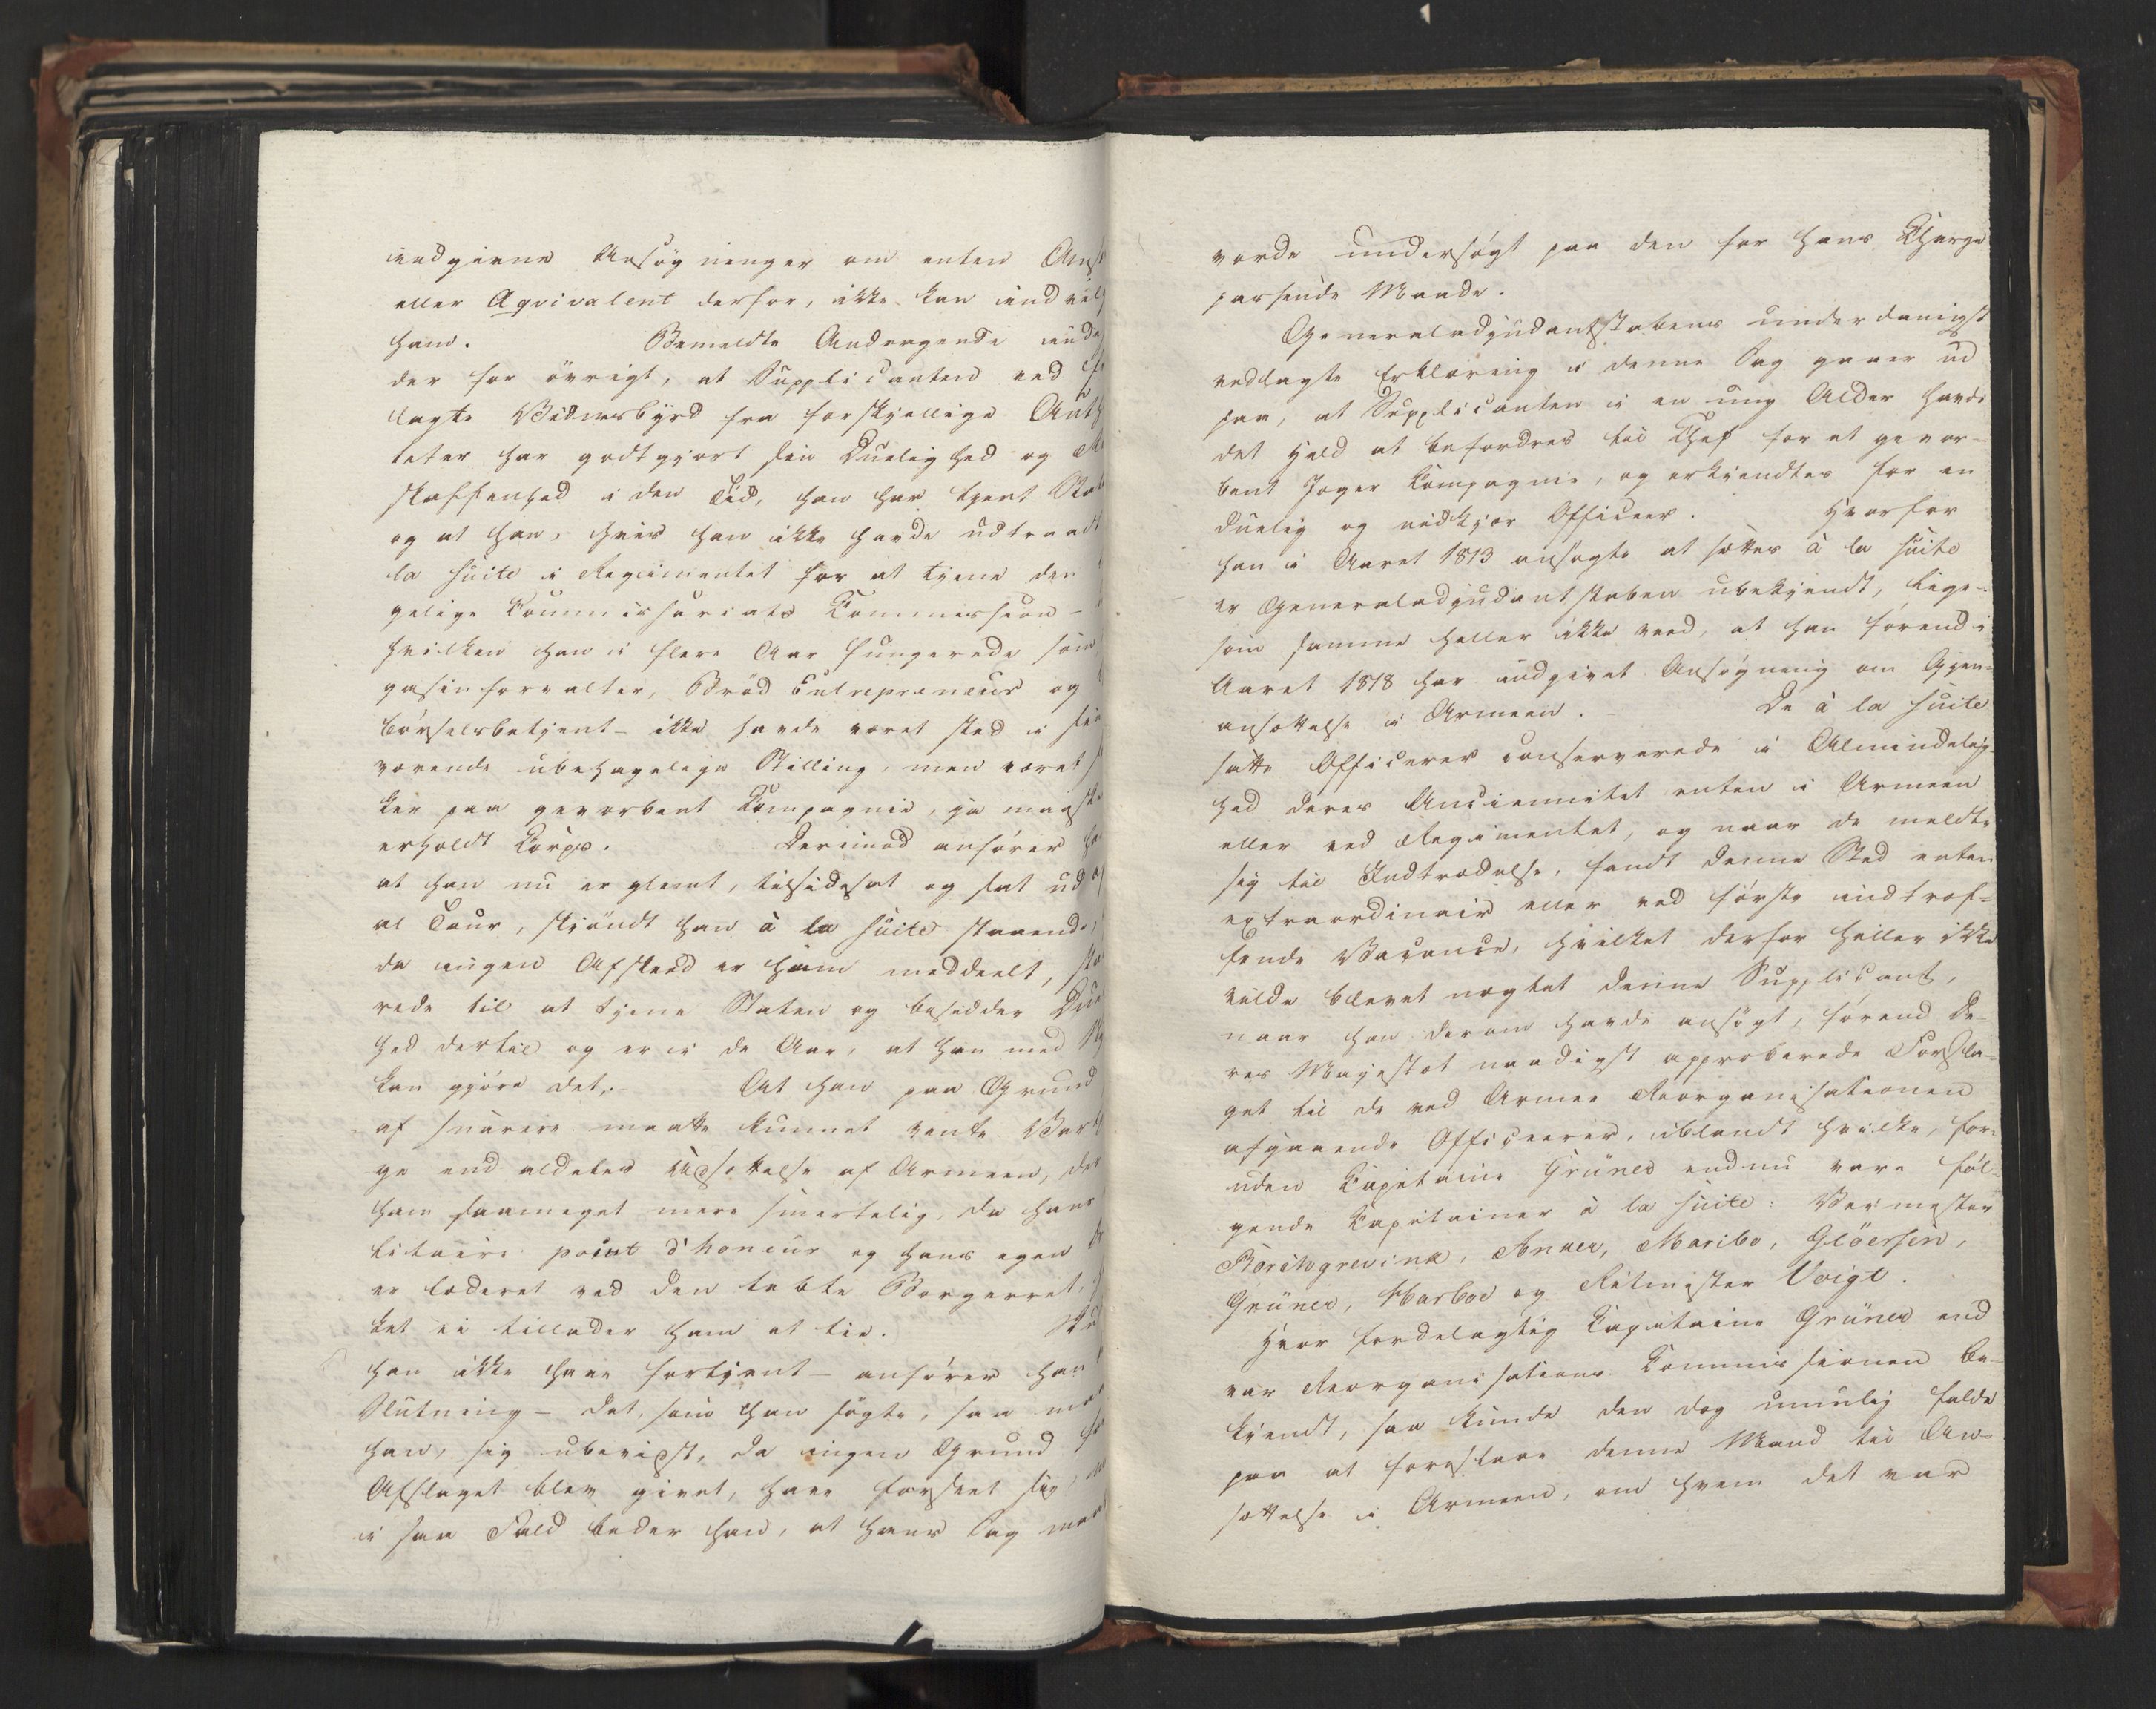 indgivne Ansøgninger om enten Ans
eller Æqvivalent derfor, ikke kan indvil
ham. Bemeldte Andragende inde
der for øvrigt, at Supplicanten ved
lagte Vidnesbyrd fra forskjellige Auth
teter har godtgjort sin Duelighed og
skaffenhed i den Tid, han har tjent Stat
og at han, hvis han ikke havde udtraadt
la suite i Regimentet for at tjene den
gelige Commissariats Commission –
hvilken han i flere Aar fungerede som
gasinforvalter, Brød Entrepreneur og
børselsbetjent – ikke havde været sted i sin
værende ubehagelige Stilling, men været
ker paa gevorbent Compagnie, ja maaske
erholdt Corps. Derimod anfører
at han nu er glemt, tilsidesat og sat ud
al Tour, skjøndt han à la suite staaende,
da ingen Afskeed er ham meddeelt,
rede til at tjene Staten og besidder Due
hed dertil og er i de Aar, at han med
kan gjøre det. At han paa Grund
af maatte kunnet vente
ge end aldeles Udsættelse af Armeen, der
ham saameget mere smertelig, da hans
litaire point d'honeur og hans egen
er læderet ved den tabte Borgerret,
ket ei tillader ham at tie.
han ikke have fortjent – anfører han
Slutning – det, som han søgte, saa maa
han, sig ubevidst, da ingen Grund
Afslaget blev givet, have forseet sig
i saa Fald beder han, at hans Sag maa
vorde undersøgt paa den for hans Charge
passende Maade.
Generaladjudantstabens underdanigst
vedlagte Erklæring i denne Sag gaaer ud
paa, at Supplicanten i en ung Alder havde
det Held at befordres til Chef for et gevor-
bent Jæger Compagnie, og erkjendtes for en
duelig og nidkjær Officeer. Hvorfor
han i Aaret 1813 ansøgte at sættes à la suite
er Generaladjudantstaben ubekjendt, lige-
som samme heller ikke veed, at han førend i
Aaret 1818 har indgivet Ansøgning om Gjen-
ansættelse i Armeen. De à la suite
satte Officerer conserverede i Almindelig-
hed deres Anciennitet enten i Armeen
eller ved Regimentet, og naar de meldte
sig til Indtrædelse, fandt denne Sted enten
extraordinair eller ved første indtræf-
fende Vacance, hvilket derfor heller ikke
vilde blevet nægtet denne Supplicant,
naar han derom havde ansøgt, førend De-
res Majestæt naadigst approberede Forsla-
get til de ved Armee Reorganisationen
afgaaende Officeerer, iblandt hvilke, for-
uden Capitaine Grüner endnu vare føl-
gende Capitainer à la suite: Veimester
Borchgrevink, Anker, Maribo, Gløersen,
Grüner, Harboe og Ritmester Voigt.
Hvor fordelagtig Capitaine Grüner end
var Reorganisations Commissionen be-
kjendt, saa kunde den dog umulig falde
paa at foreslaae denne Mand til An-
sættelse i Armeen, om hvem det var